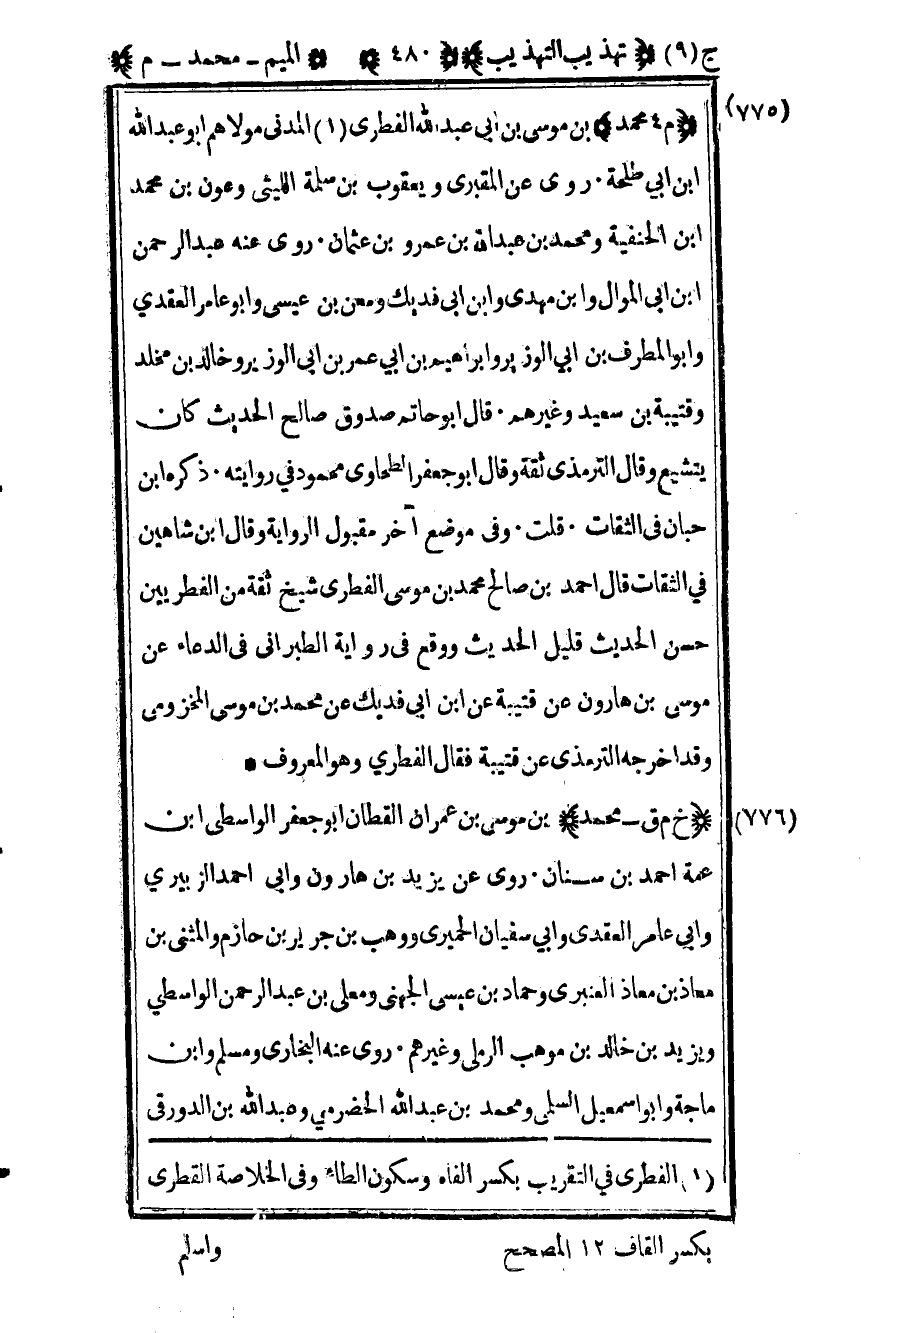 ج (٩) ﴿ تهذيب التهذيب ﴾ ﴿ ٤٨٠ ﴾ ﴿ الميم - محمد - م ﴾
(٧٧٥) ﴿ م ٤ محمد ﴾ بن موسى بن أبي عبد الله الفطرى (١) المدنى مولاهم ابو عبد الله
ابن ابي طلحة ٠ روى عن المقبرى ويعقوب بن سلمة الليثى وعون بن محمد
ابن الحنفية ومحمد بن عبدالله بن عمرو بن عثمان ٠ روى عنه عبد الرحمن
ابن ابى الموال وابن مهدى وابن ابى فديك ومعن بن عيسى وابو عامر العقدي
وابو المطرف بن ابي الوزير وابراهيم بن ابي عمر بن ابى الوزير وخالد بن مخلد
وقتيبة بن سعيد وغيرهم ٠ قال ابوحاتم صدوق صالح الحديث كان
يتشيع وقال الترمذى ثقة وقال ابو جعفر الطحاوى محمود في روايته ٠ ذكره ابن
حبان فى الثقات ٠ قلت ٠ وفى موضع آخر مقبول الرواية وقال ابن شاهين
في الثقات قال احمد بن صالح محمد بن موسى الفطرى شيخ ثقة من الفطريين
حسن الحديث قليل الحديث ووقع فى رواية الطبرانى فى الدعاء عن
موسى بن هارون عن قتيبة عن ابن ابي فديك عن محمد بن موسى المخزومى
وقد اخرجه الترمذى عن قتيبة فقال الفطري وهو المعروف •
(٧٧٦) ﴿ خ م ق - محمد ﴾ بن موسى بن عمران القطان ابو جعفر الواسطى ابن
عمة احمد بن سنان ٠ روى عن يزيد بن هارون وابي احمد الزبيري
وابي عامر العقدى وابي سفيان الحميرى ووهب بن جرير بن حازم والمثنى بن
معاذ بن معاذ العنبرى وحماد بن عيسى الجهنى ومعلى بن عبد الرحمن الواسطي
ويزيد بن خالد بن موهب الرملى وغيرهم ٠ روى عنه البخارى ومسلم وابن
ماجة وابو اسمعيل السلمى ومحمد بن عبدالله الحضرمي وعبدالله بن الدورقى
(١) الفطرى في التقريب بكسر الفاء وسكون الطاء وفى الخلاصة القطرى
بكسر القاف ١٢ المصحح
واسلم